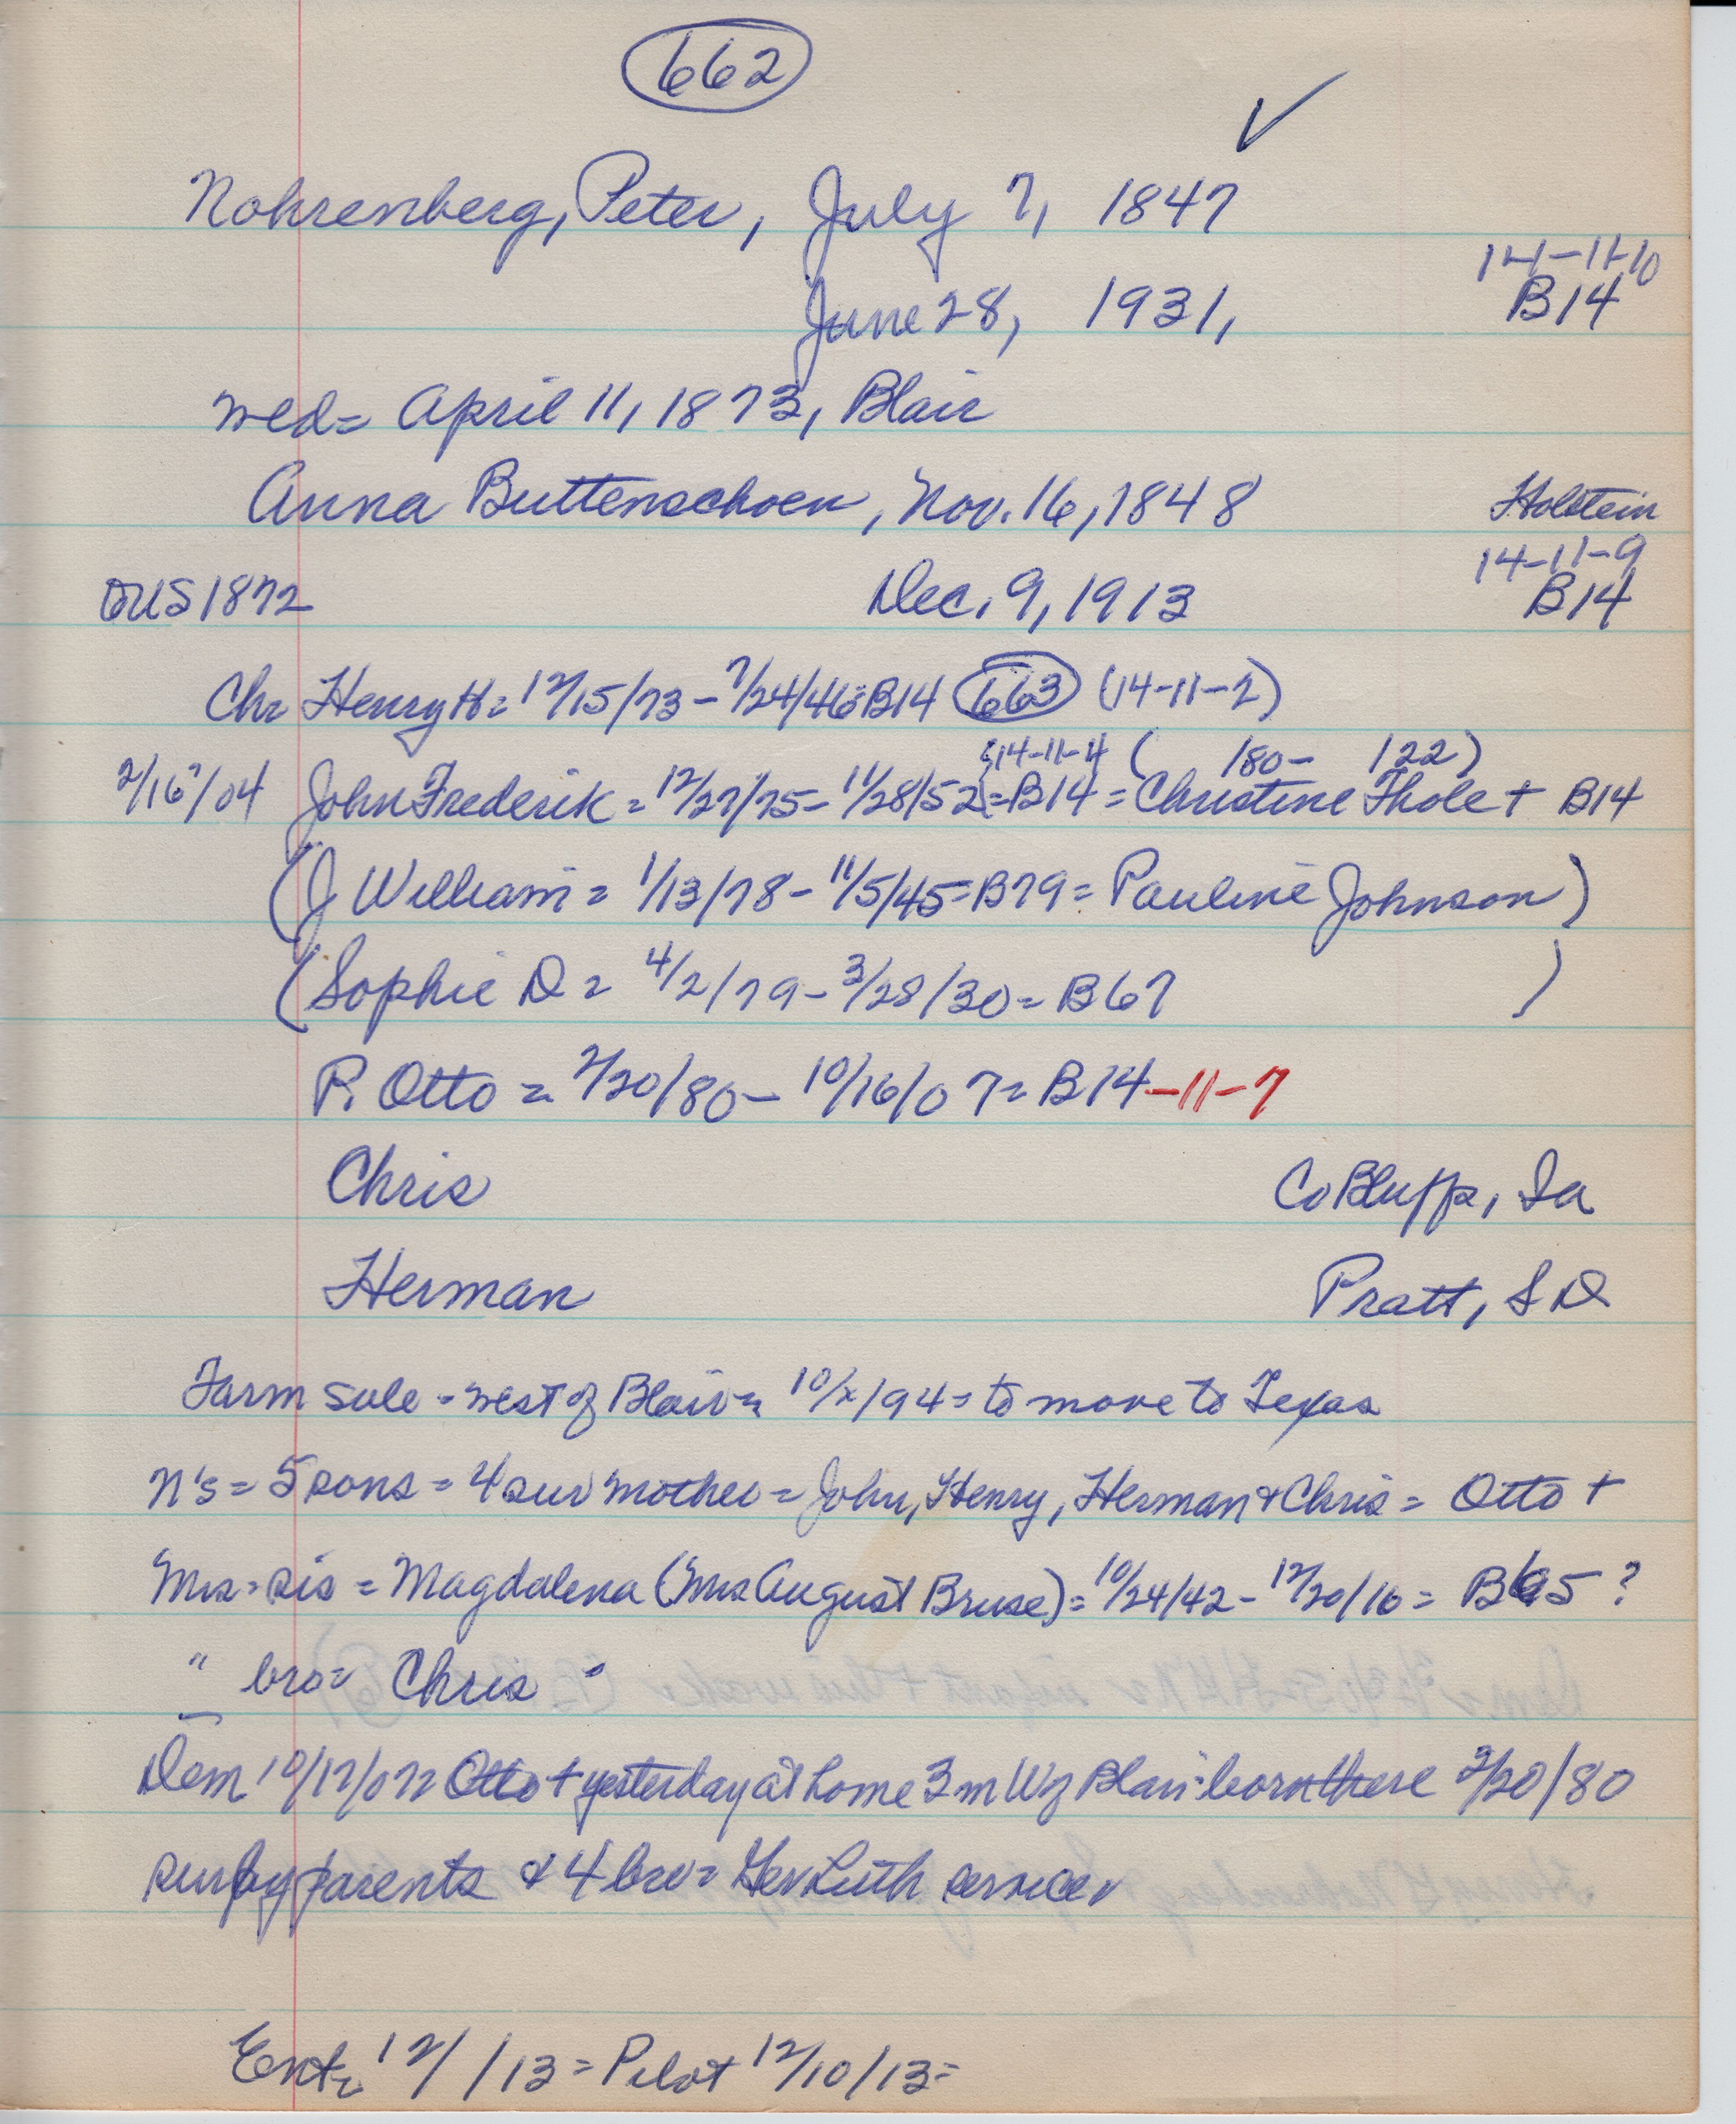 662
✓
Nohrenberg, Peter, July 7, 1847
14-11-10
June 28, 1931,
B14
wed= April 11, 1873, Blair
Anna Buttenschoen, Nov. 16, 1848 Holstein
14-11-9
US 1872 Dec. 9, 1913 B14
Chr Henry H= 12/15/73 - 7/24/46=B14 663 (14-11-2)
14-11-4 ( 180- 122)
2/16?/04 John Frederik = 12/27/75- 11/28/52=B14 = Christine Thole + B14
(J William = 1/13/78- 11/5/45=B79= Pauline Johnson)
(Sophie D = 4/2/79- 3/28/30= B67 )
P. Otto = 2/20/80- 10/16/07= B14-11-7
Chris Co Bluffs, Ia
Herman Pratt, S D
Farm sale - west of Blair= 10/2/94= to move to Texas
N's = 5 sons = 4 sur mother = John, Henry, Herman & Chris = Otto +
Mrs = sis = Magdalena (Mrs August Bruse)= 10/24/42- 12/20/16= B65 ?
" bro= Chris "
Dem 10/17/07= Otto + yesterday at home 3 m W of Blair - born there 2/20/80
sur by parents & 4 bro= Ger Luth service=
Ent= 12/ /13= Pilot 12/10/13=